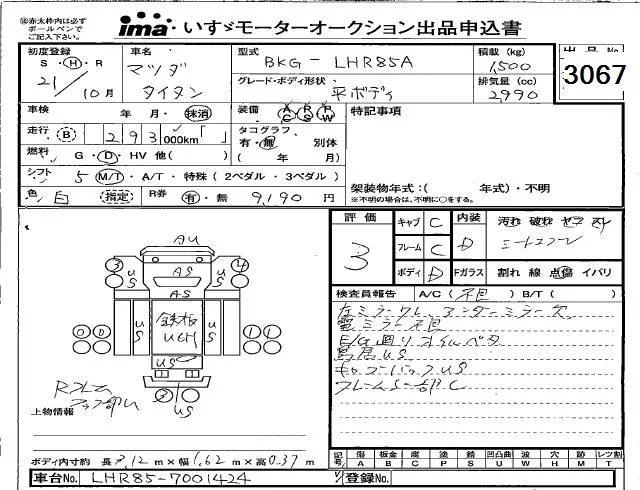 ㊟赤太枠内は必ず
ボールペンで
ご記入下さい。
ima いすゞモーターオークション出品申込書
初度登録 車名 型式 積載 (kg) 出品 No.
S・H・R マツダ BKG-LHR85A 1,500
21/10月 タイタン グレード・ボディ形状 平ボディ 排気量 (cc) 2,990
3067
車検 年・月・抹消 装備 AC PS PW 特記事項
走行 B 293 000km「 」 タコグラフ 有・無 別体
燃料 G・D・HV 他( ) ( 年 月)
シフト 5 M/T・A/T・特殊 (2ペダル・3ペダル)
架装物年式:( 年式)・不明
色 白 指定 R券 有・無 9,190 円
※不明の場合は、不明に○をする。
評価 キャブ C 内装 汚れ 破れ ヤニ スレ
3 フレーム C D
ボディ D Fガラス 割れ 線 点傷 イバリ
検査員報告 A/C( 不良 ) B/T( )
左ミラーワレ、アンダーミラー欠
電ミラー不良
E/G廻りオイルベタ
鳥居US
キャブバックUS
フレームS一部C
AU
3 4
US AS US
AS
US 鉄板 UCH US
0 0 1 1
US
3
US
Rフレーム
上物情報
ボディ内寸約 長 3,12 m×幅 1,62 m×高 0.37 m
記号 傷 板金 腐 塗 錆 凹凸曲 波 穴 跡 レツ割
A B C P S U W H M T
車台No. LHR85-7001424 登録No.